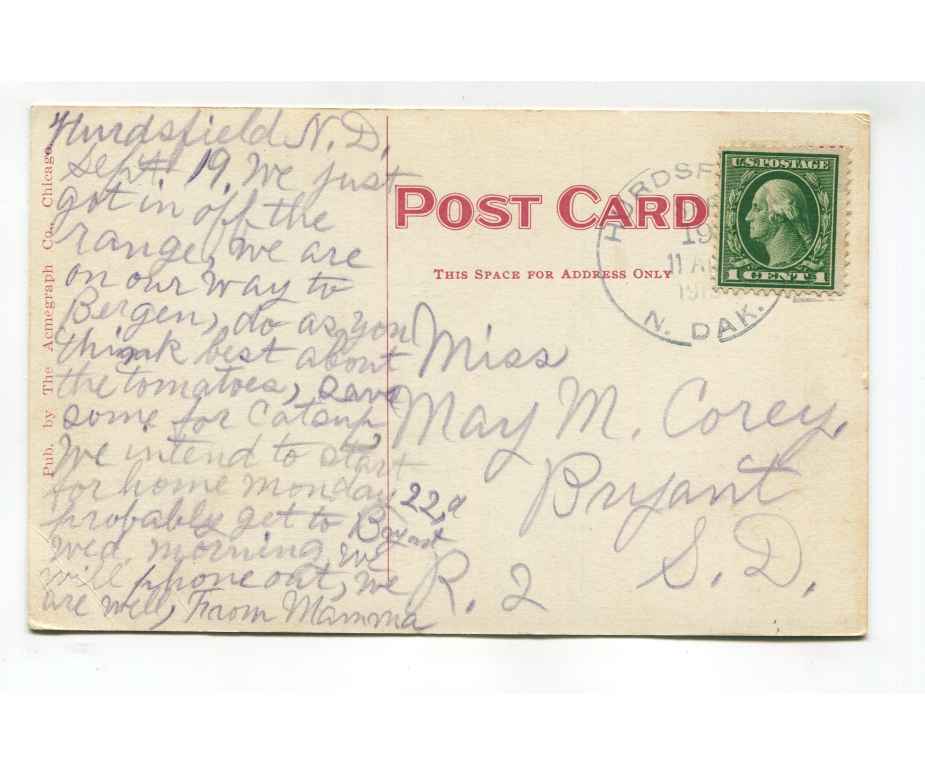 Hurdsfield N.D.
Sept 19, We just
got in off the
range, we are
on our way to
Bergen, do as you
think best about
the tomatoes, save
some for Catsup
We intend to start
for home Monday 22,d
probably get to Bryant
Wed, morning, we
will, phone out, we
are well, From Mamma
Pub. by The Acmegraph Co., Chicago.
POST CARD
THIS SPACE FOR ADDRESS ONLY
HURDSF
19
11 A
191
N. DAK.
U.S. POSTAGE
1 CENT 1
Miss
May M. Corey,
Bryant
S. D.
R. 2